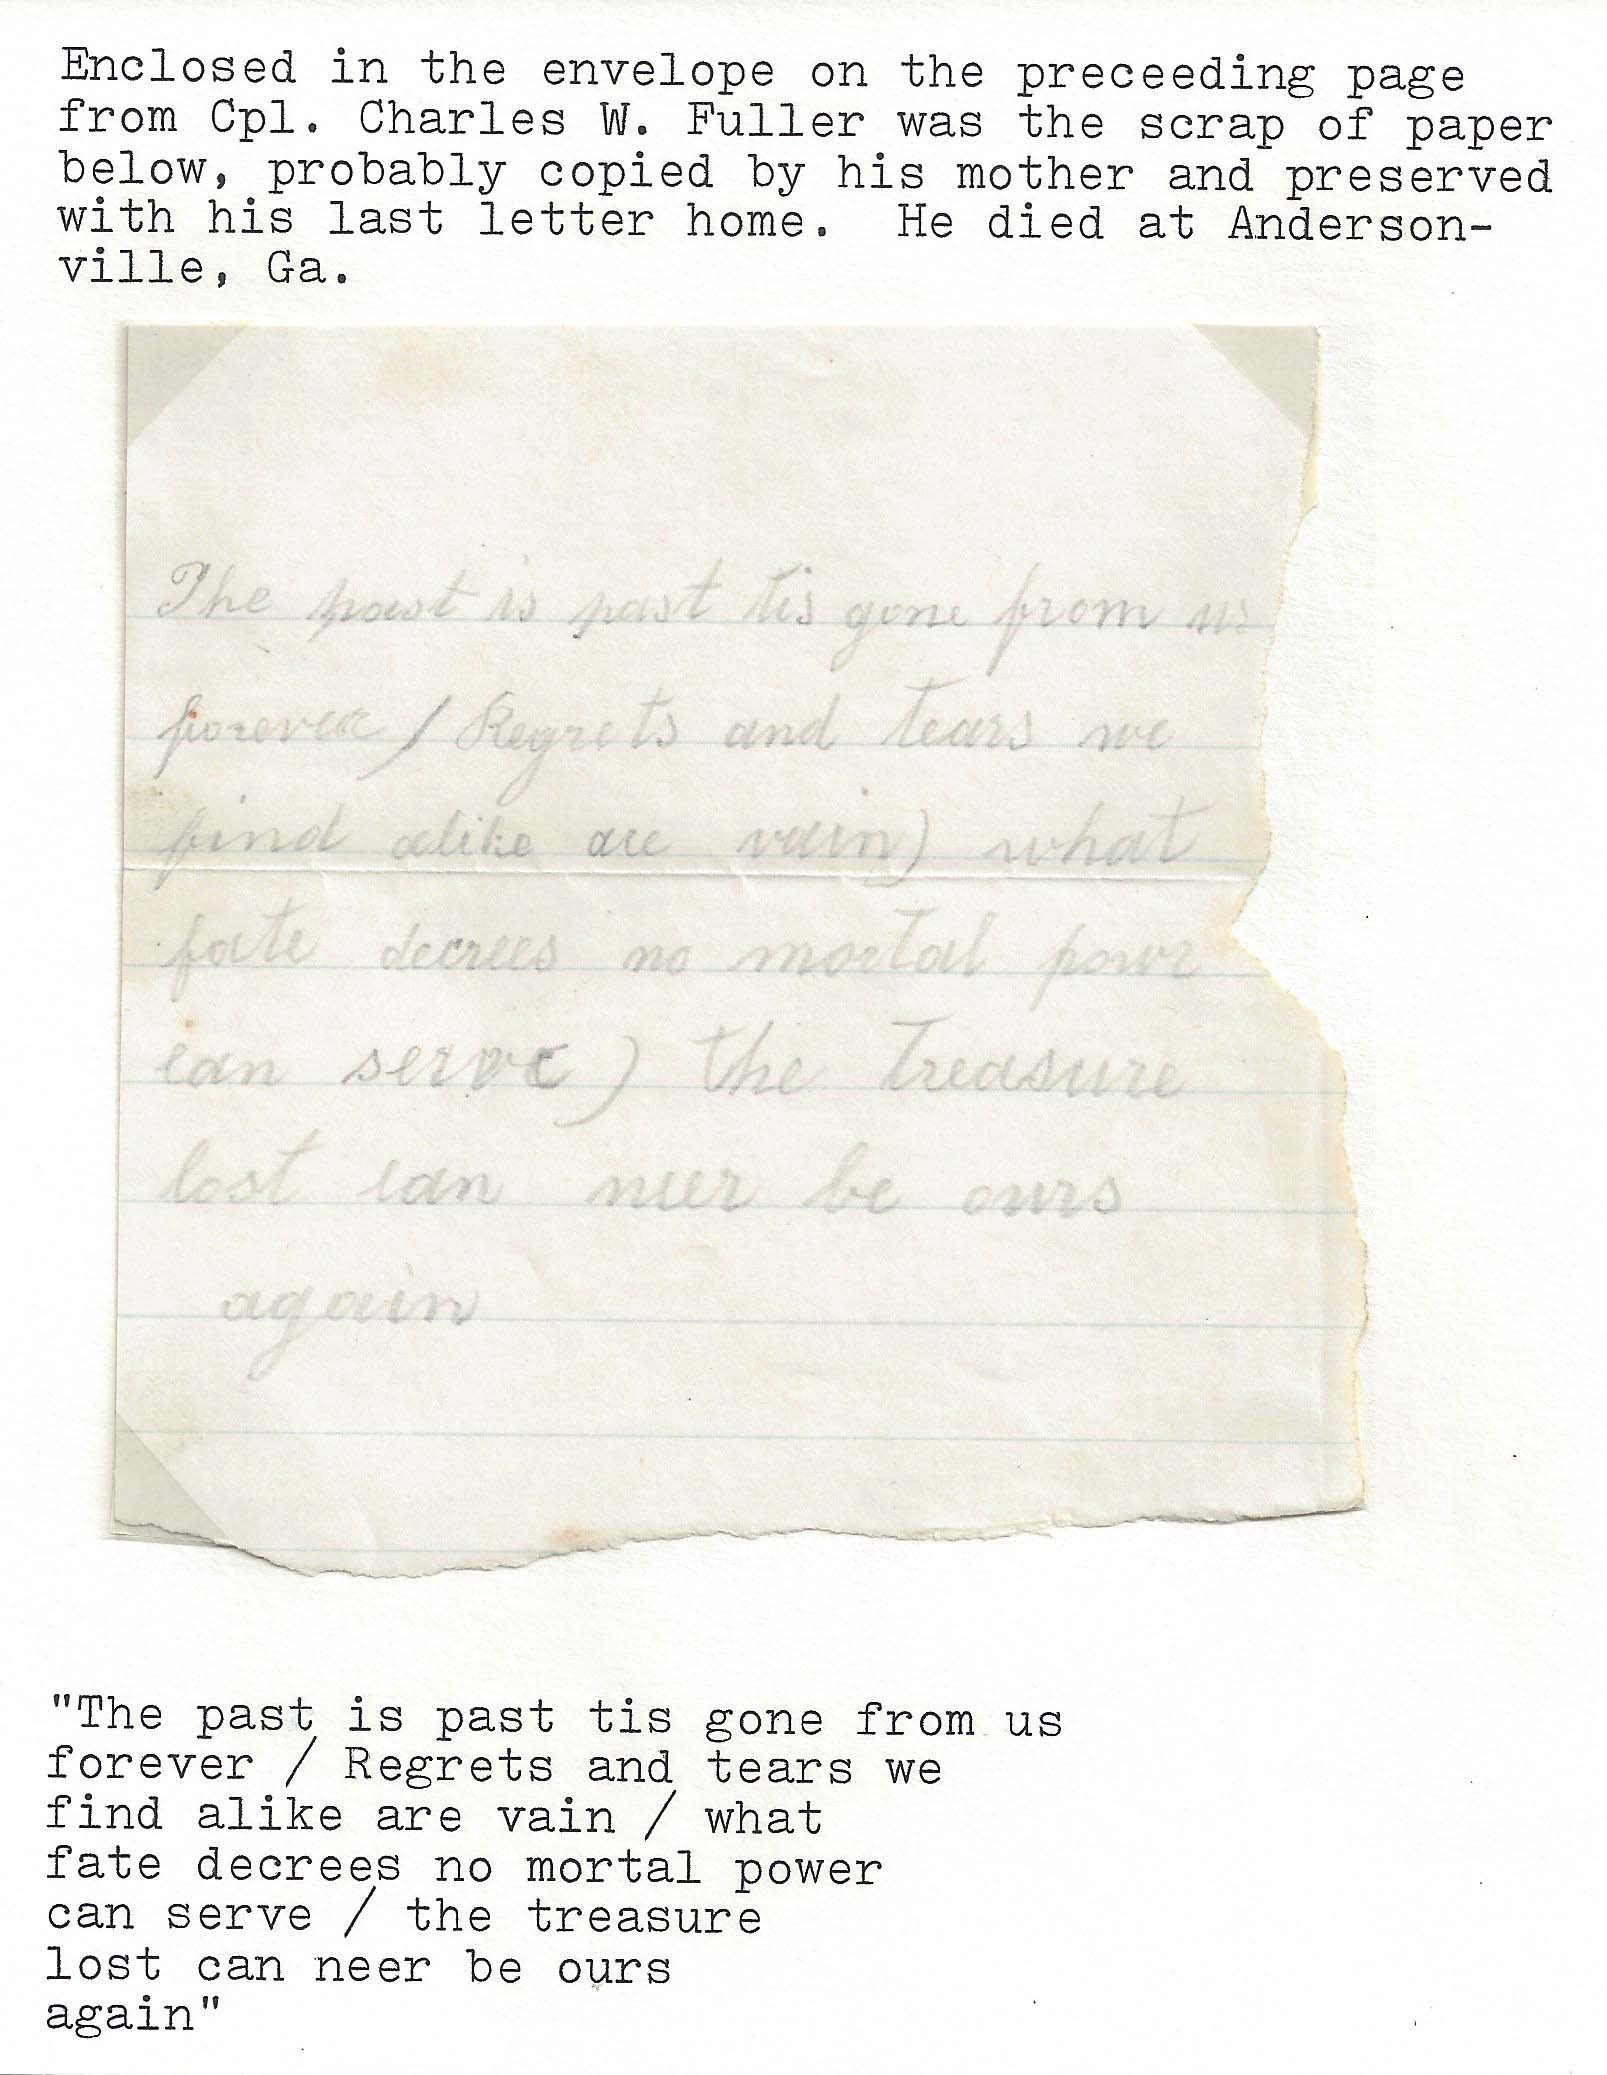 Enclosed in the envelope on the preceeding page
from Cpl. Charles W. Fuller was the scrap of paper
below, probably copied by his mother and preserved
with his last letter home.  He died at Anderson-
ville, Ga.
The past is past tis gone from us
forever / Regrets and tears we
find alike are vain) what
fate decrees no mortal powr
can serve ) the treasure
lost can neer be ours
again
"The past is past tis gone from us
forever / Regrets and tears we
find alike are vain / what
fate decrees no mortal power
can serve / the treasure
lost can neer be ours
again"